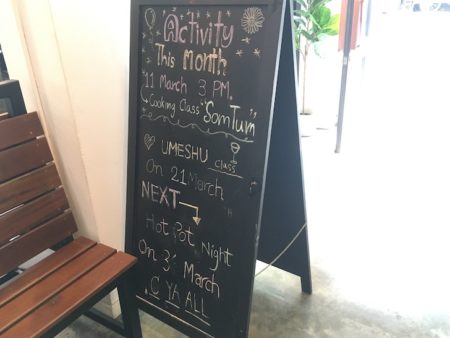 @ctivity
This month
11 March 3 PM.
Cooking Class "SomTum"
UMESHU class
On 21 March
NEXT
Hot Pot Night
On 31 March
C YA ALL